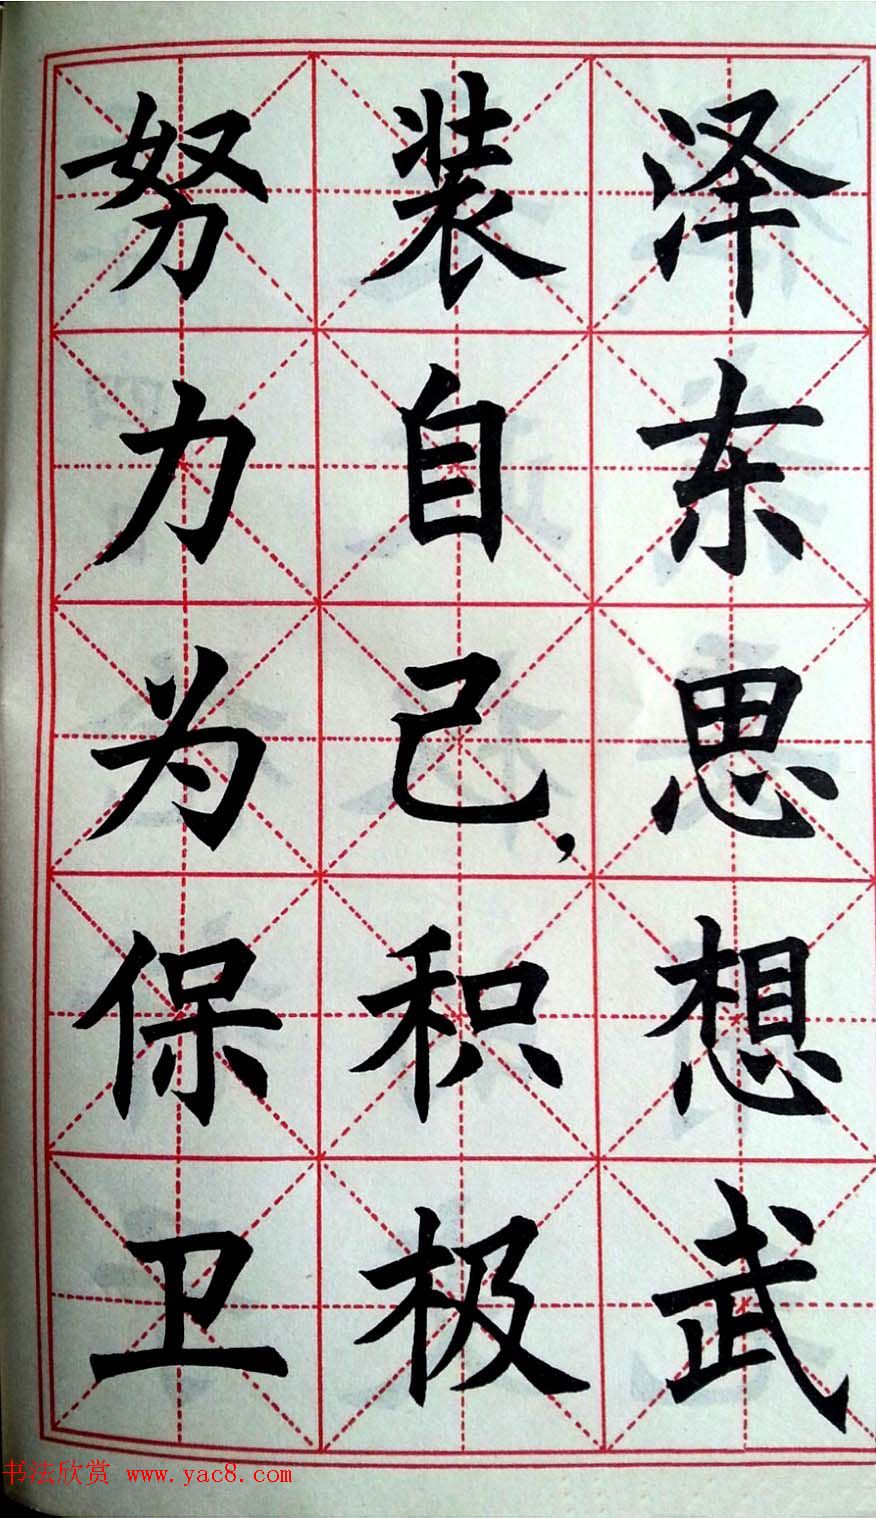 泽东思想武
装自己，积极
努力为保卫
书法欣赏 www.yac8.com